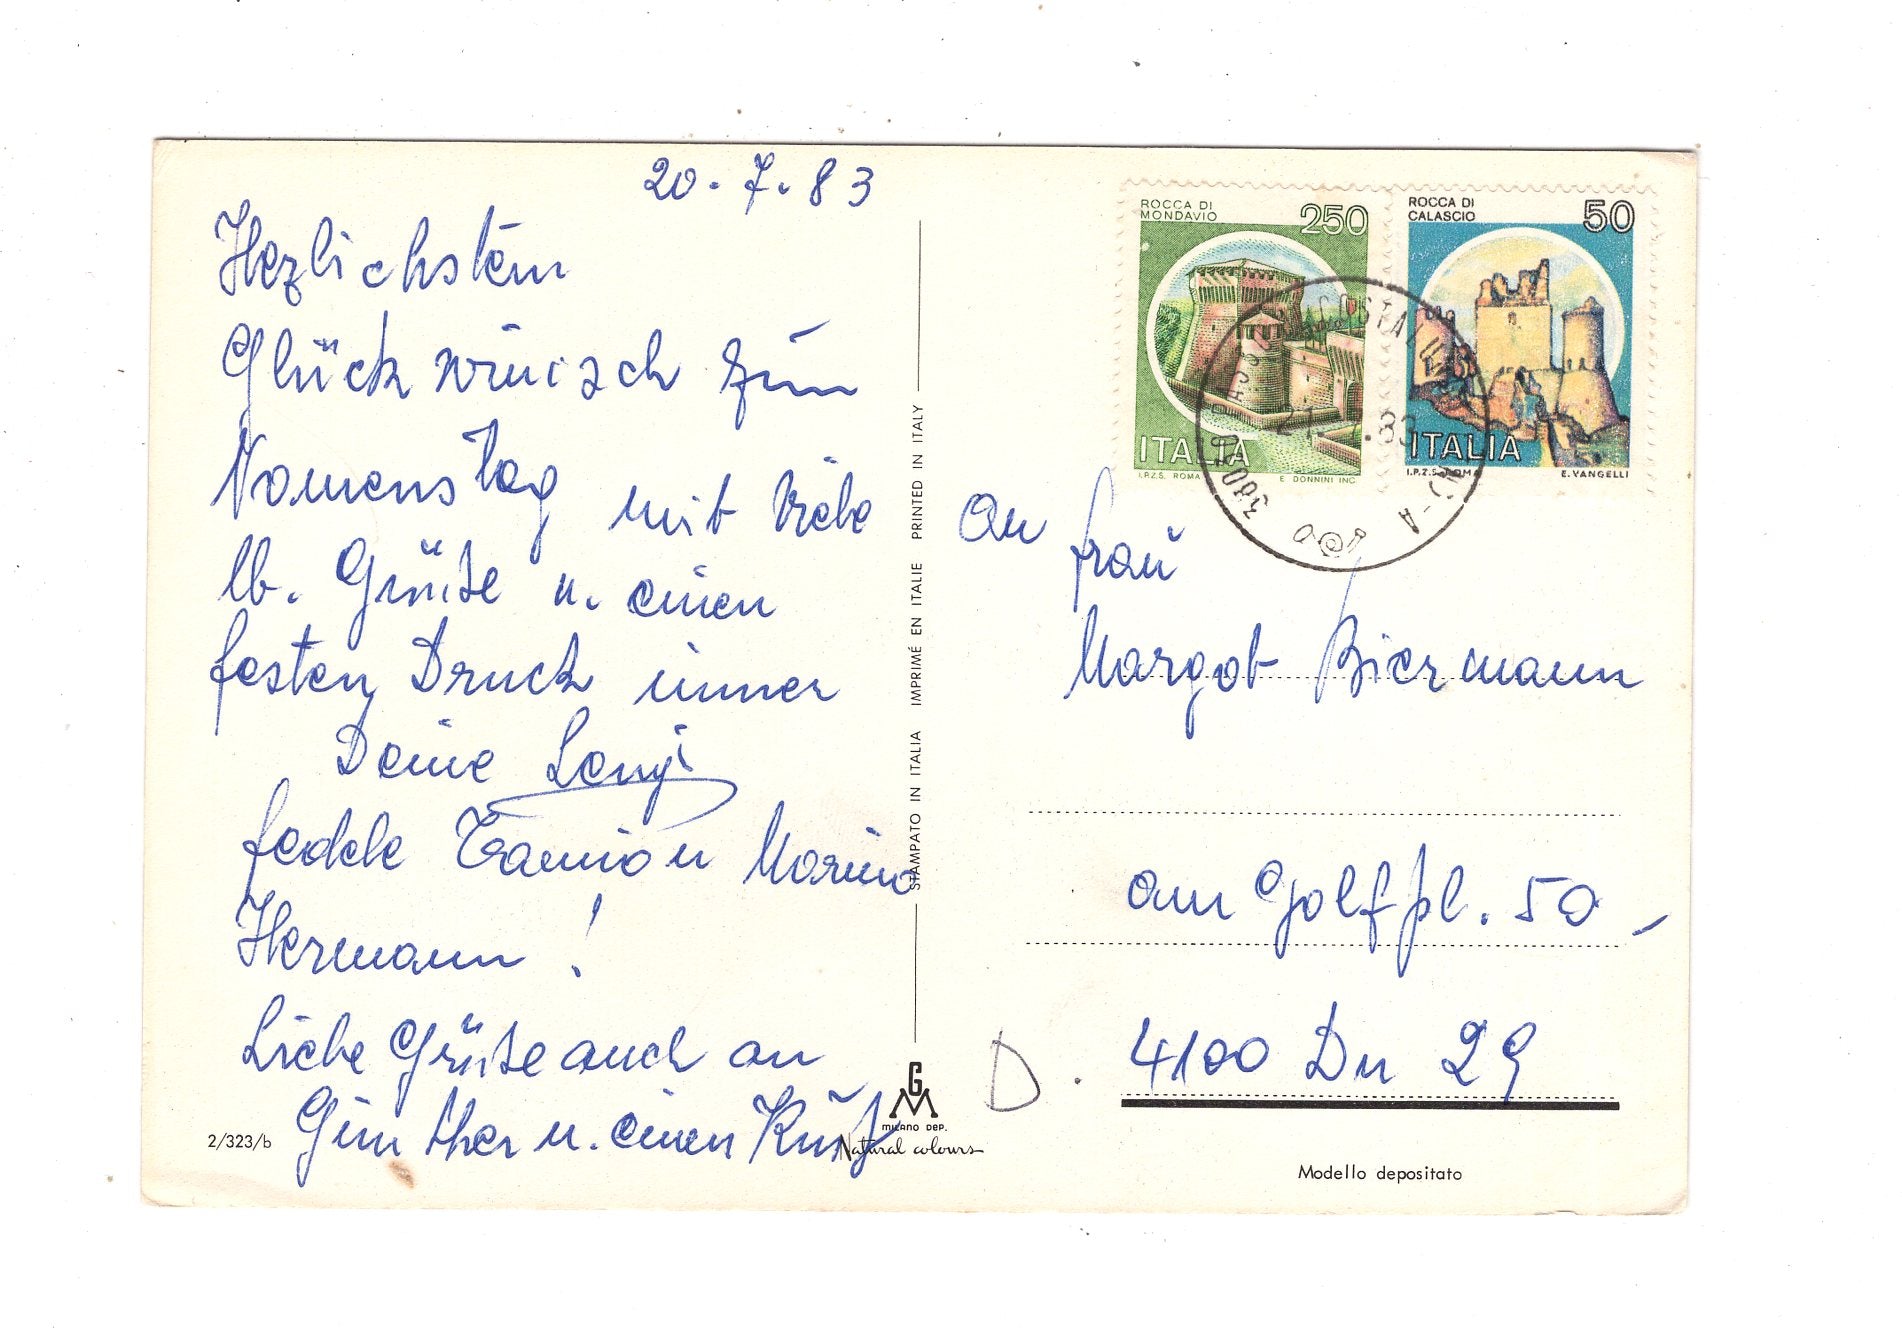 20.7.83
Herzlichsten
Glückwunsch zum
Namenstag mit viele
lb. Grüße u. einen
festen Druck immer
Deine Lenzi
fedele Marino
Hermann!
Liebe Grüße auch an
Günther u. einen Kuß
2/323/b
STAMPATO IN ITALIA IMPRIMÉ EN ITALIE PRINTED IN ITALY
GM
MILANO DEP.
Natural colours
ROCCA DI
MONDAVIO
250
ITALIA
I.P.Z.S. ROMA E DONNINI INC
ROCCA DI
CALASCIO
50
ITALIA
I.P.Z.S. ROMA E. VANGELLI
COSTALUNGA
21. .83
An Frau
Margot Biermann
am Golfpl. 50
D. 4100 Du 29
Modello depositato